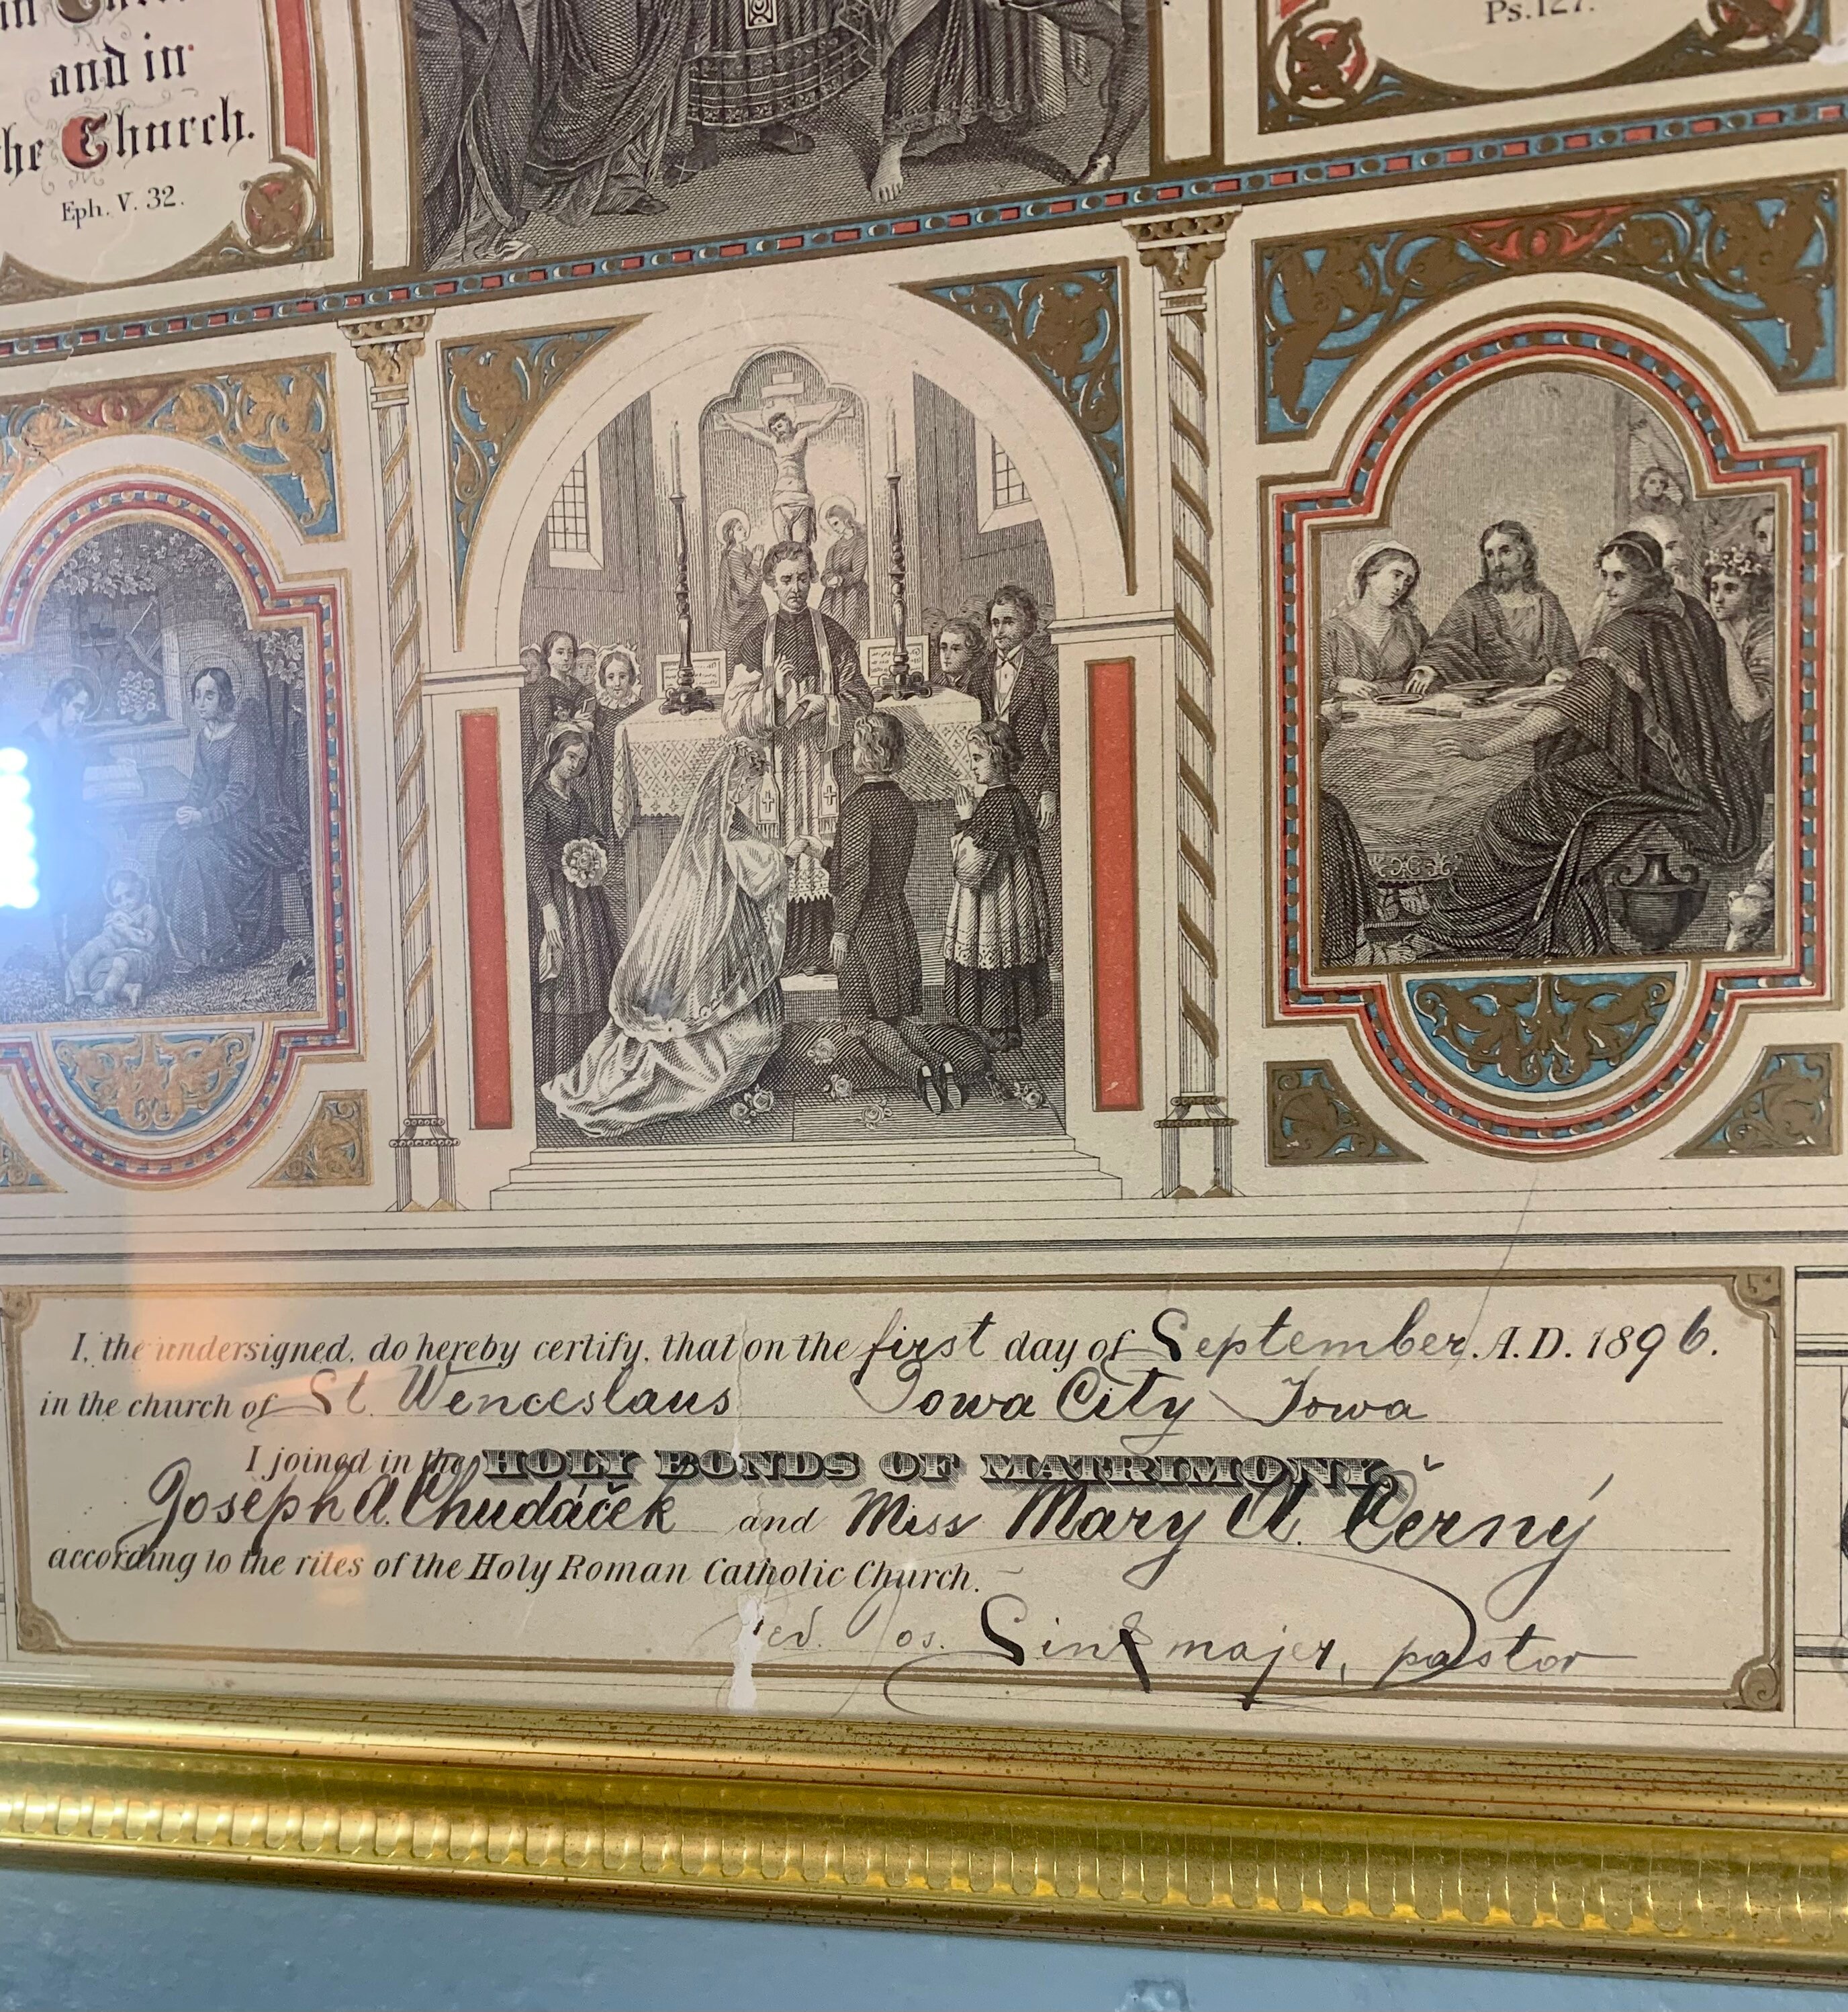 and in
the Church.
Eph. V. 32.
Ps. 127.
I, the undersigned, do hereby certify, that on the first day of September, A.D. 1896.
in the church of St. Wenceslaus Iowa City Iowa
I joined in the HOLY BONDS OF MATRIMONY,
Joseph A. Chudáček and Miss Mary A. Černý
according to the rites of the Holy Roman Catholic Church.
Jos. Sinkmajer, pastor